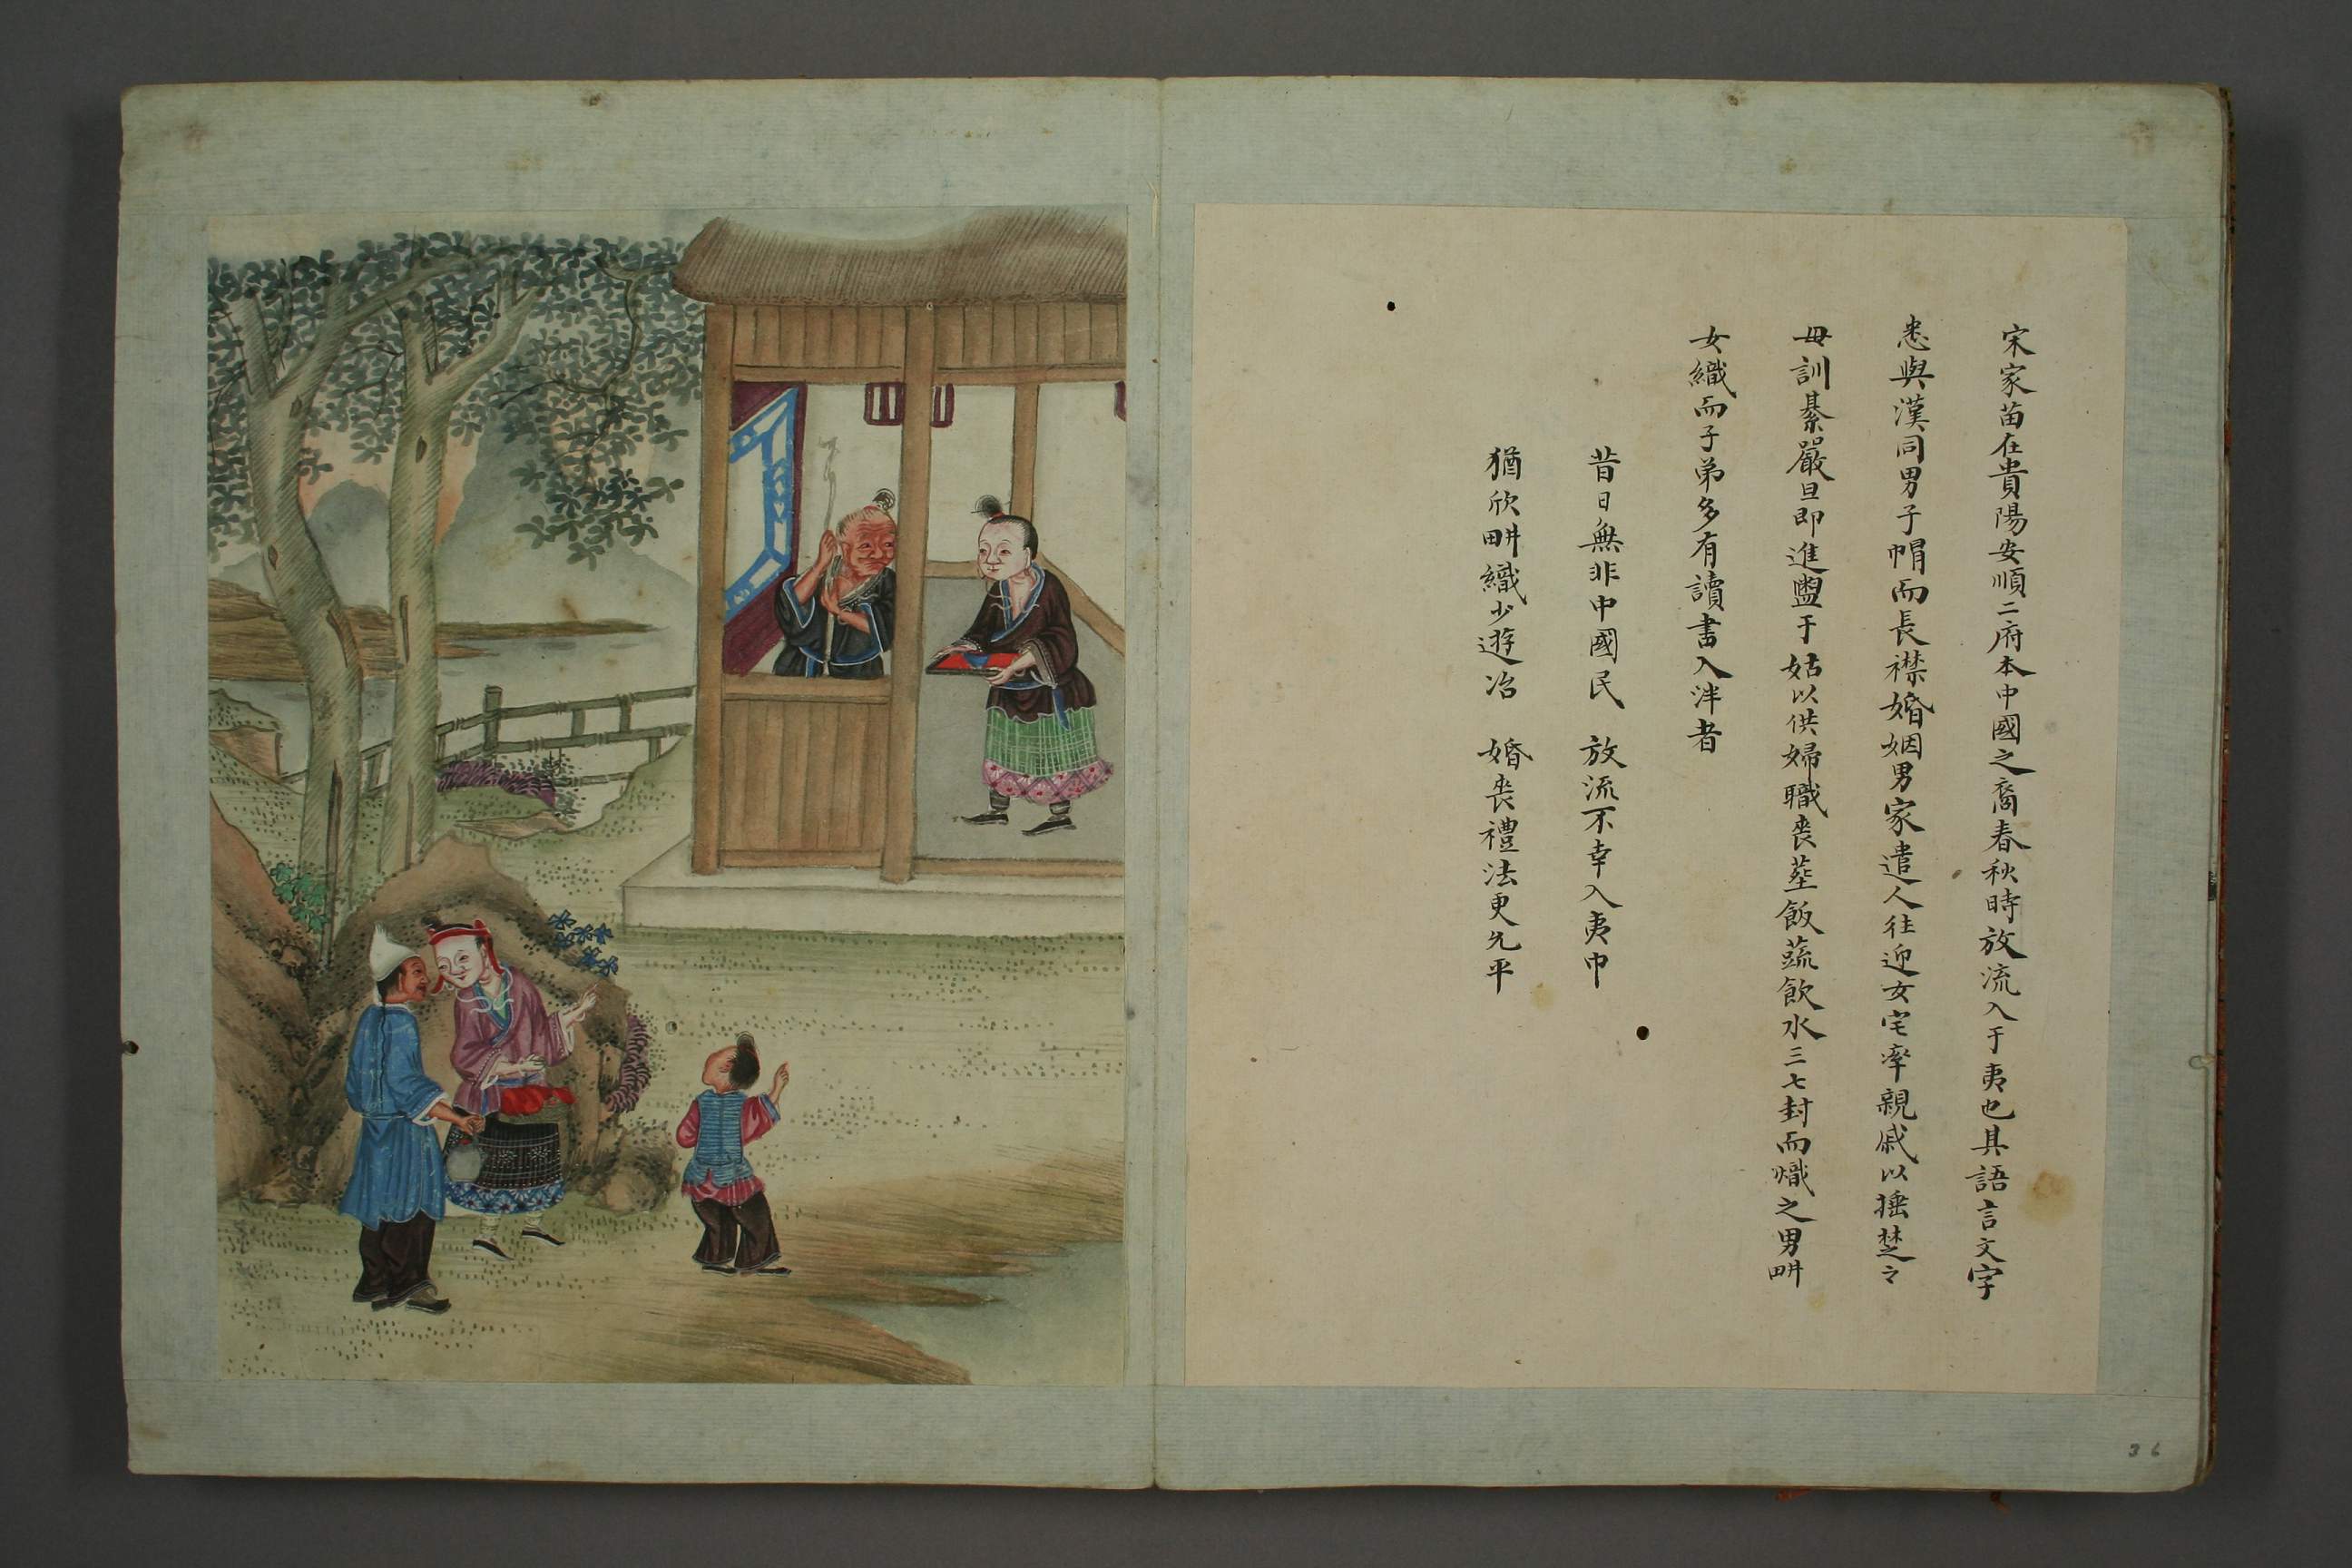 宋家苗在貴陽安順二府本中國之裔春秋時放流入于夷也其語言文字
悉與漢同男子帽而長襟婚姻男家遣人往迎女宅率親戚以捶楚之
毋訓綦嚴旦即進盥于姑以供婦職喪塟飯蔬飲水三七封而熾之男畊
女織而子弟多有讀書入泮者
昔日無非中國民　放流不幸入夷中
猶欣畊織少遊冶　婚喪禮法更允平
36